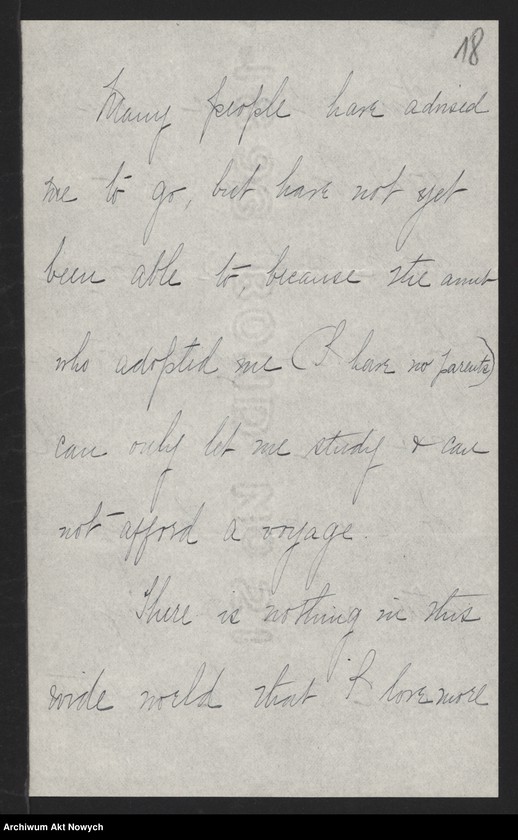 18
Many people have advised
me to go, but have not yet
been able to because the aunt
who adopted me (I have no parents)
can only let me study & can
not afford a voyage.
There is nothing in this
wide world that I love more
Archiwum Akt Nowych